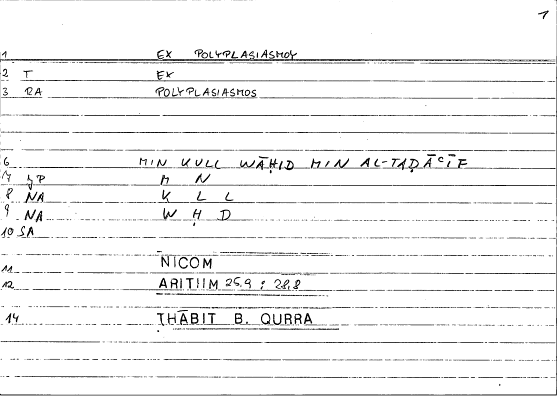 1
1 EX POLYPLASIASMOY
2 T EX
3 RA POLYPLASIASMOS
6 MIN KULL WĀḤID MIN AL-TAḌĀʿĪF
7 M N
8 NA K L L
9 NA W Ḥ D
10 SA
11 NICOM
12 ARITIIM 25.9 : 28,8
14 THĀBIT B. QURRA